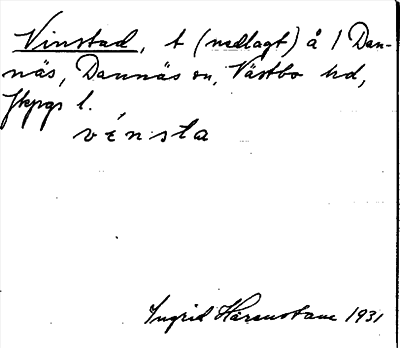 Vinstad, t (nedlagt) å 1 Dan-
näs, Dannäs sn, Västbo hd,
Jkpgs l.
vénsta
Ingrid 1931